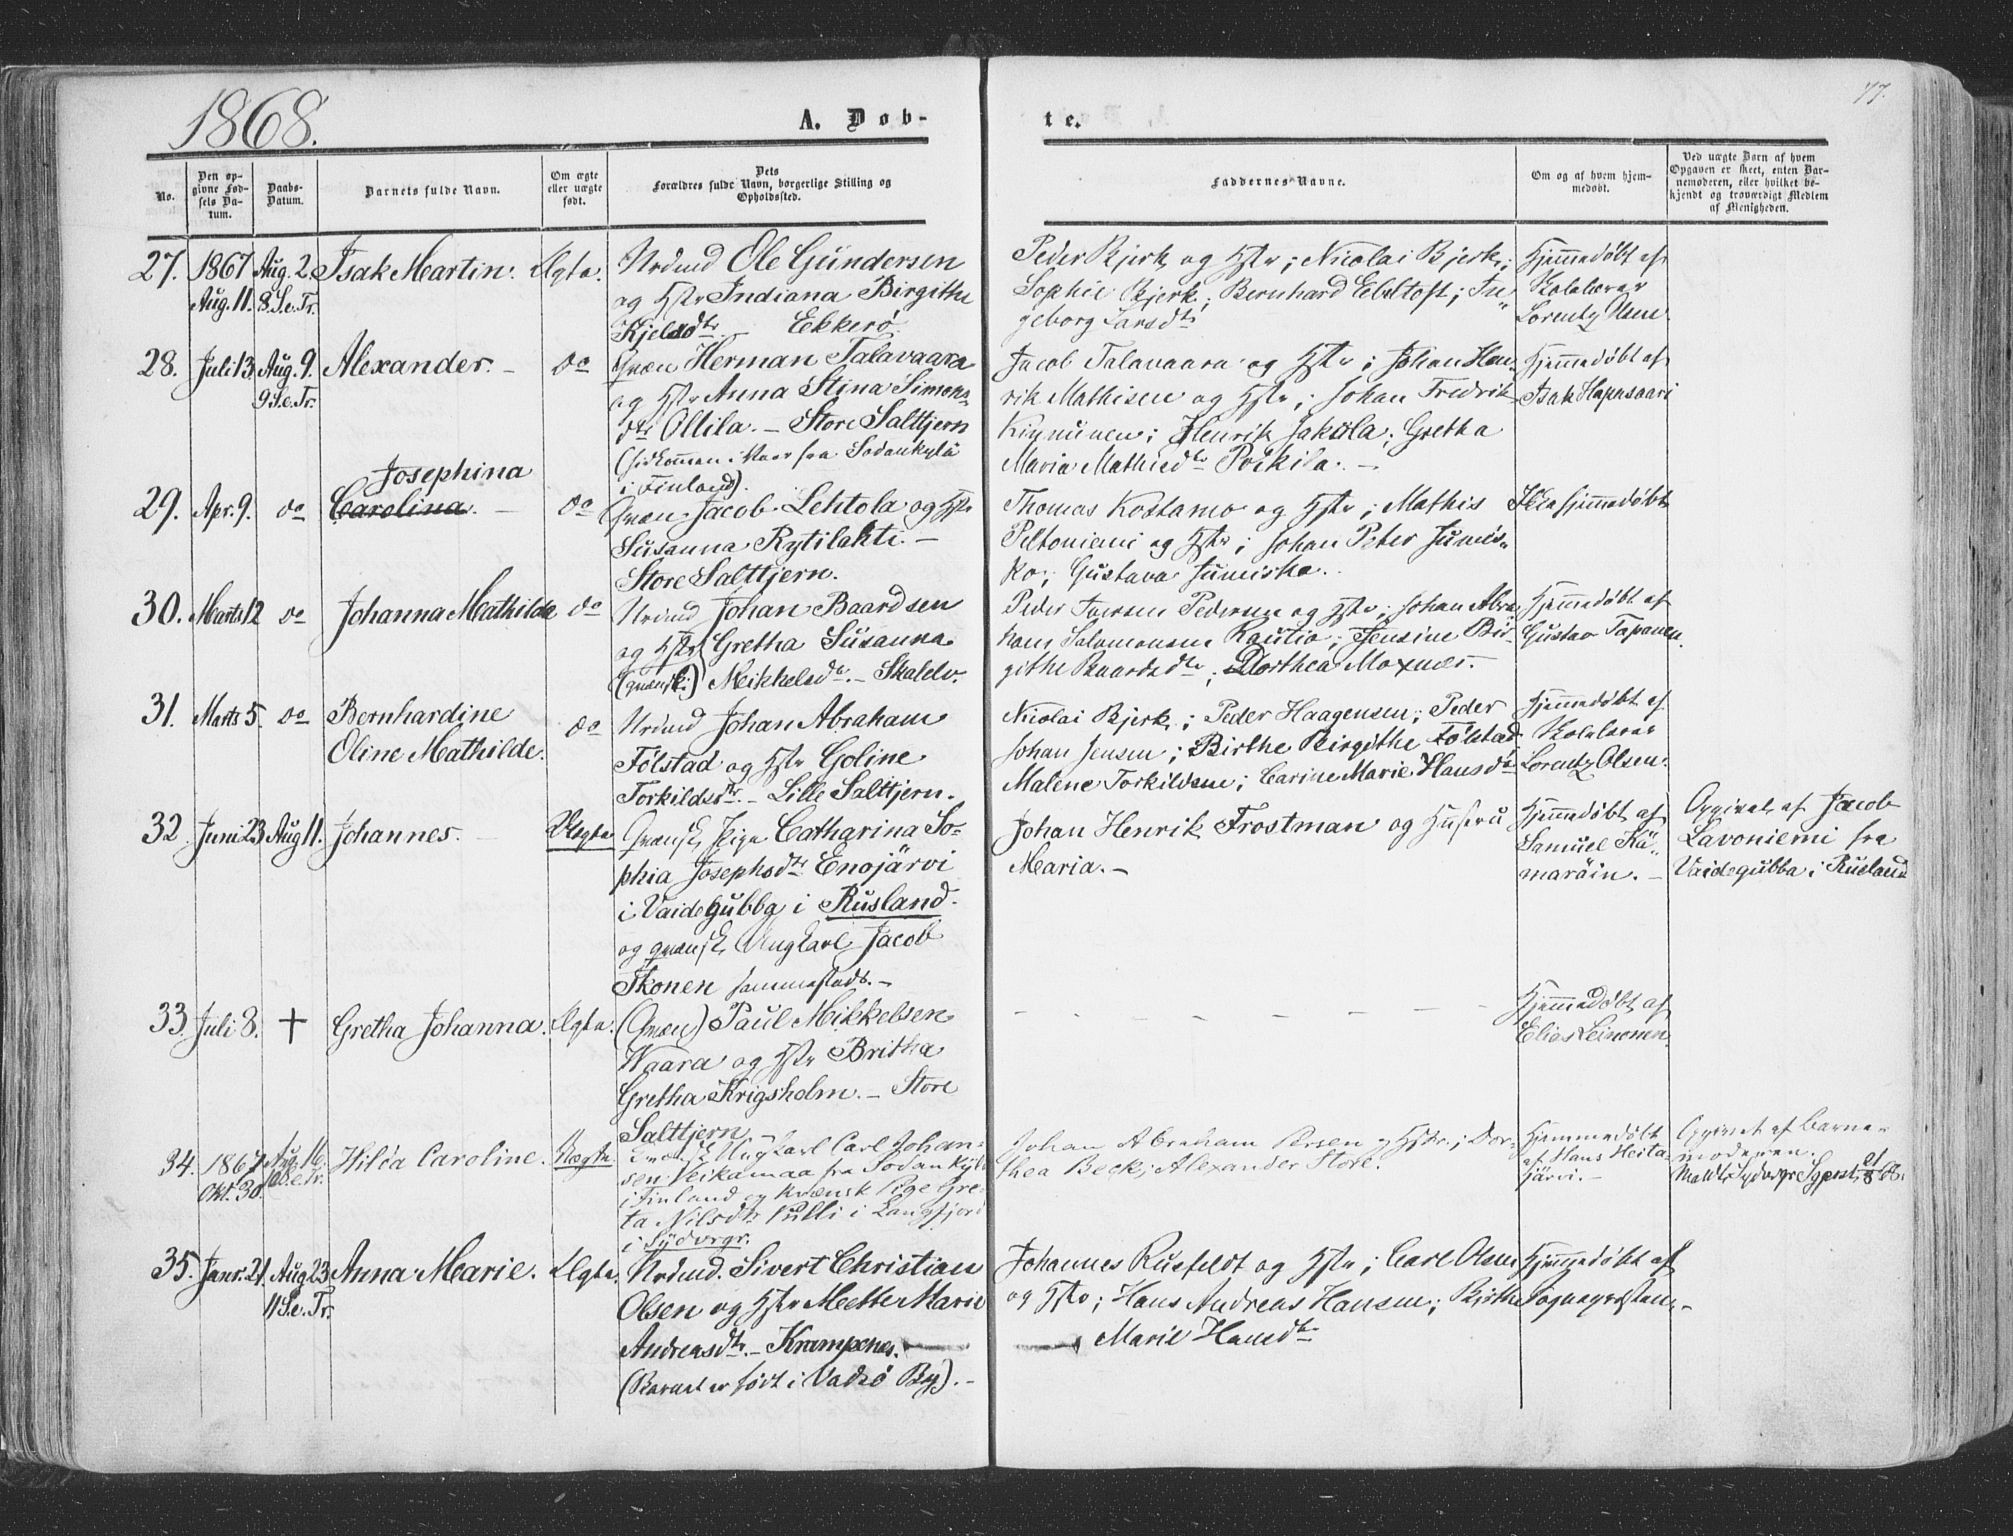 1868.
A. Døb-
te.
77.
No.
Den op-
givne Fød-
sels Da-
tum.
Daabs-
Datum.
Barnets fulde Navn.
Om ægte
eller uægte
født.
Dets
Forældres fulde Navn, borgerlige Stilling og
Opholdssted.
Faddernes Navne.
Om og af hvem hjem-
medøbt.
Ved uægte Børn af hvem
Opgaven er skeet, enten Bar-
nemoderen, eller hvilket be-
kjendt og troværdigt Medlem
af Menigheden.
27. 1867 Aug. 2 Isak Martin. Ægte.
Aug. 11. 8.S.e.Tr.
Nrdmd Ole Gundersen
og Hstr Indiana Birgithe
Kjelsdtr. — Ekkerø.
Peder Bjerk og Hstr; Nicolai Bjerk;
Sophie Bjerk; Bernhard Ebeltoft; In-
geborg Larsdtr
Hjemmedøbt af
Skolelærer
Lorentz Olsen.
28. Juli 13. Aug. 9. Alexander. — do
9 S.e.Tr.
Qvæn Herman Talavaara
og Hstr Anna Stina Simons-
dtr Ollila. — Store Salttjern
(hidkommen i Vaar fra Sodankylä
i Finland).
Jacob Talavaara og Hstr; Johan Hen-
rik Mathisen og Hstr; Johan Fredrik
Kinnunen; Henrik Jakola; Gretha
Maria Mathisdtr Poikila. —
Hjemmedøbt af
Isak Hapasaari
29. Apr. 9. do Josephina
Carolina. — do
Qvæn Jacob Lehtola og Hstr
Susanna Rytilahti. —
Store Salttjern.
Thomas Kostamo og Hstr; Mathis
Peltoniemi og Hstr; Johan Peter Jumis-
ko; Gustava Jumisko.
Ikke hjemmedøbt
30. Marts 12 do Johanna Mathilde do
Nrdmd Johan Baardsen
og Hstr Gretha Susanna
(qvænsk) Mikkelsdtr. — Skaldv.
Peder Iversen Pedersen og Hstr; Johan Abra-
ham Salomonsen Rautio; Jensine Bir-
githe Baardsdtr; Dorthea Moxnæs. —
Hjemmedøbt af
Gustav Tapanen.
31. Marts 5. do Bernhardine
Oline Mathilde. do
Nrdmd Johan Abraham
Følstad og Hstr Goline
Torkildsdtr. — Lille Salttjern.
Nicolai Bjerk; Peder Haagensen; Peder
Johan Jensen; Birthe Birgithe Følstad
Malene Torkildsen; Carine Marie Hansdtr
Hjemmedøbt af
Skolelærer
Lorentz Olsen.
32. Juni 23 Aug 11. Johannes. — Uægte
Qvænsk Pige Catharina So-
phia Josephsdtr Enojärvi
i Vaidegubba i Rusland.
og qvænsk Ungkarl Jacob
Ikonen sammesteds. —
Johan Henrik Frostman og Hustru
Maria. —
Hjemmedøbt af
Samuel Kä-
maräin. —
Opgivet af Jacob
Lavoniemi fra
Vaidegubba i Rusland
33. Juli 8. + Gretha Johanna. Ægte.
(Qvæn) Paul Mikkelsen
Waara og Hstr Britha
Gretha Krigsholm. — Store
Salttjern —
Hjemmedøbt af
Elias Leinonen.
34. 1867 Aug. 16 Hilda Caroline. Uægte.
Okt. 30 10.S.e.Tr.
Kvænsk Ungkarl Carl Johan-
sen Veikamaa fra Sodankylä
i Finland og kvænsk Pige Gre-
ta Nilsdtr Pulli i Langfjord
i Sydvrgr.
Johan Abraham Persen og Hstr; Dor-
thea Beck; Alexander Store.
Hjemmedøbt
af Hans Heita-
järvi. —
Opgivet af Barne-
moderen.
35. Janr. 21. Aug 23. Anna Marie. Ægte.
11 S.e.Tr.
Nrdmd. Sivert Christian
Olsen og Hstr Mette Marie
Andreasdtr. — Krampenes.
(Barnet er født i Vadsø By). —
Johannes Rusfeldt og Hstr; Carl Olsen
og Hstr; Hans Andreas Hansen; Birthe
Marie Hansdtr
Hjemmedøbt af
Sognepræsten. —